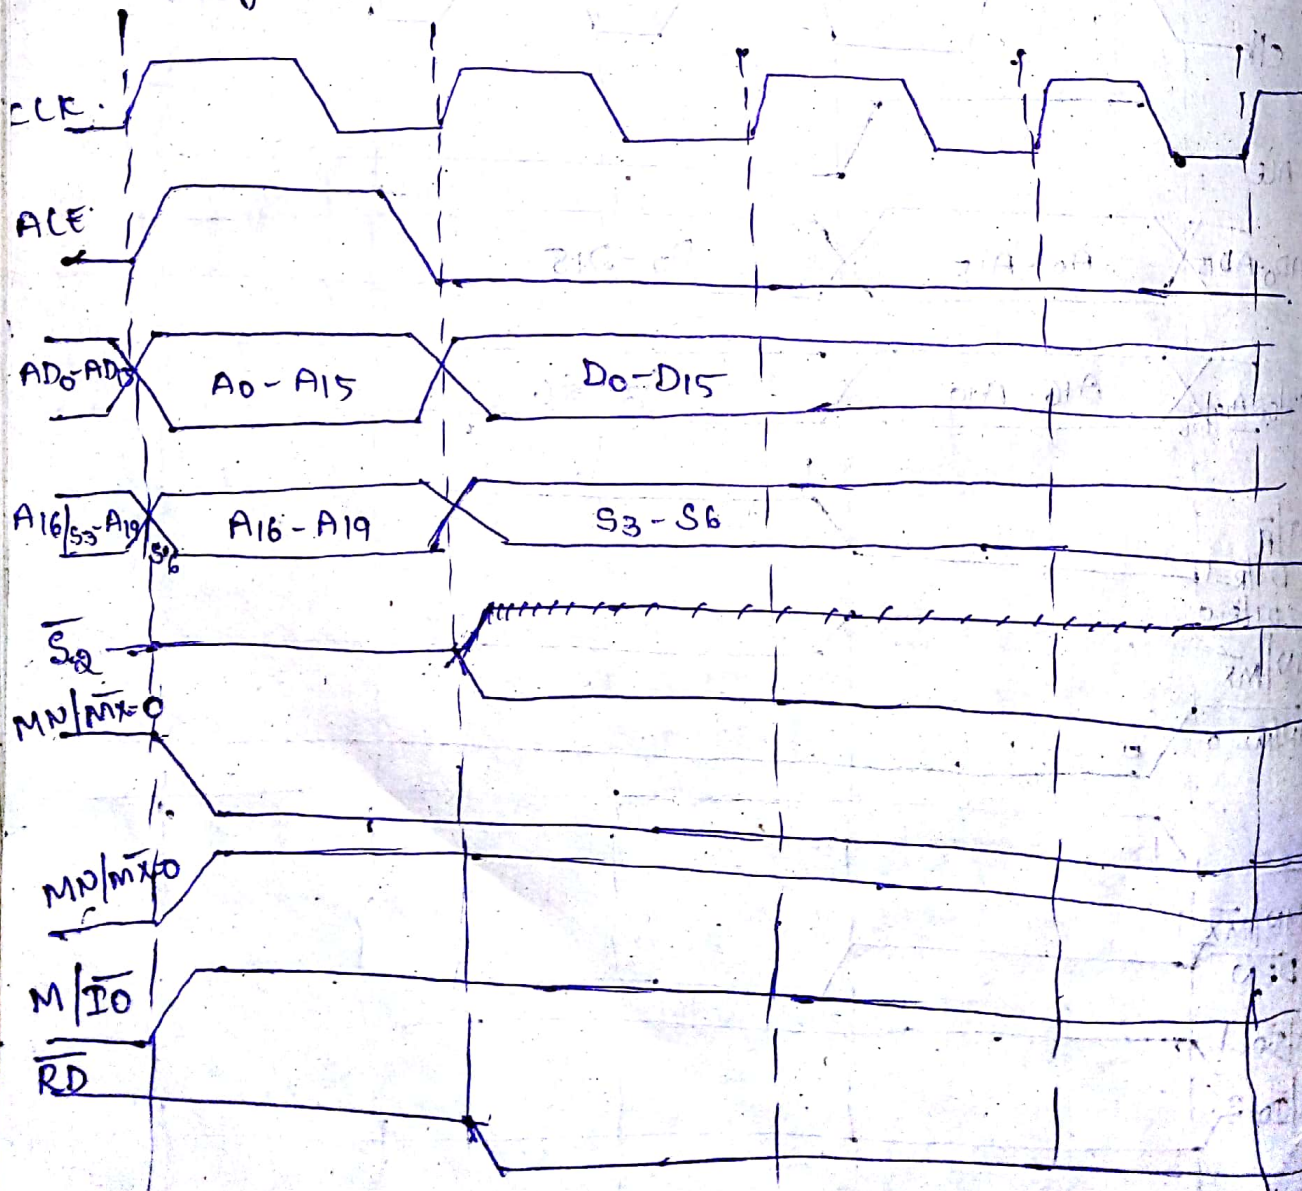 CLK
ALE
AD0-AD15 A0-A15 D0-D15
A16/S3-A19/S6 A16-A19 S3-S6
S̅2
MN/M̅X̅=0
MN/M̅X̅=0
M/I̅O̅
R̅D̅